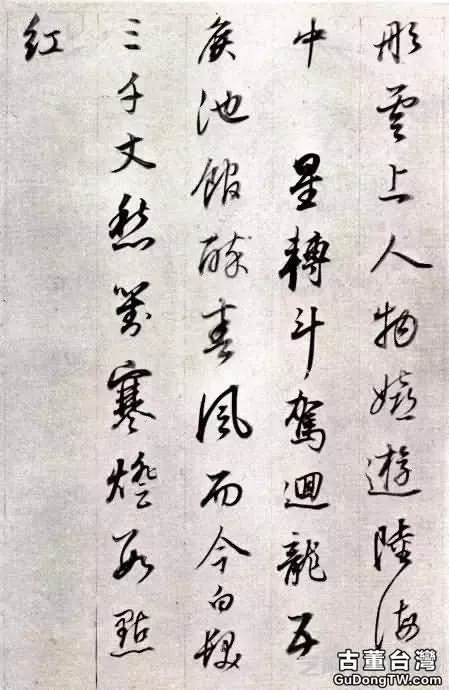 彤雲上人物嬉遊陸海
中 星轉斗駕迴龍五
侯池館醉春風而今白髮
三千丈愁對寒燈數點
紅
古董台灣
GuDongTW.com